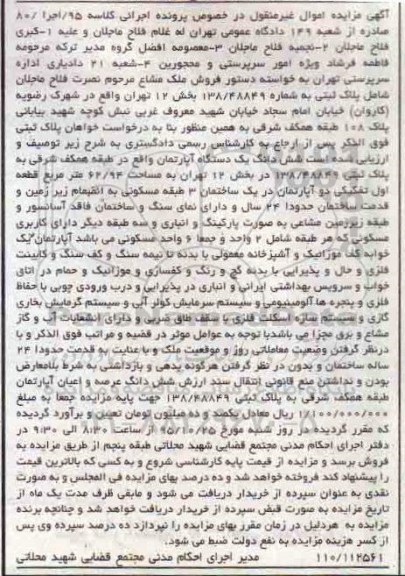 آگهی مزایده اموال غیرمنقول در خصوص پرونده اجرائی کلاسه ۹۵/اجرا /۸۰
صادره از شعبه ۱۴۹ دادگاه عمومی تهران له غلام فلاح ماجلان و علیه ۱-کبری
فلاح ماجلان ۲-نجمیه فلاح ماجلان ۳-معصومه افضل گروه مدیر ترکه مرحومه
فاطمه فرشاد ویژه امور سرپرستی و محجورین ۴-شعبه ۲۱ دادیاری اداره
سرپرستی تهران به خواسته دستور فروش ملک مشاع مرحوم نصرت فلاح ماجلان
شامل پلاک ثبتی به شماره ۱۳۸/۴۸۸۴۹ بخش ۱۲ تهران واقع در شهرک رضویه
(کاروان) خیابان امام سجاد خیابان شهید معروف غربی نبش کوچه شهید بیابانی
پلاک ۱۰۸ طبقه همکف شرقی به همین منظور بنا به درخواست خواهان پلاک ثبتی
فوق الذکر پس از ارجاع به کارشناس رسمی دادگستری به شرح زیر توصیف و
ارزیابی شده است شش دانگ یک دستگاه آپارتمان واقع در طبقه همکف شرقی به
پلاک ثبتی ۱۳۸/۴۸۸۴۹ در بخش ۱۲ تهران به مساحت ۶۲/۹۴ متر مربع قطعه
اول تفکیکی دو آپارتمان در یک ساختمان ۳ طبقه مسکونی به انضمام زیر زمین و
قدمت ساختمان حدودا ۲۴ سال و دارای نمای سنگ و ساختمان فاقد آسانسور و
طبقه زیرزمین مشاعی به صورت پارکینگ و انباری و سه طبقه دیگر دارای کاربری
مسکونی که هر طبقه شامل ۲ واحد و جمعا ۶ واحد مسکونی می باشد آپارتمان یک
خوابه کف موزائیک و آشپزخانه معمولی با بدنه تا نیمه سنگ و کف سنگ و کابینت
فلزی و حال و پذیرایی با بدنه گچ و رنگ و کفسازی و موزائیک و حمام در اتاق
خواب و سرویس بهداشتی ایرانی و انباری در پذیرایی و درب ورودی چوبی با حفاظ
فلزی و پنجره ها آلومینیومی و سیستم سرمایش کولر آبی و سیستم گرمایش بخاری
گازی و سیستم سازه اسکلت فلزی با سقف طاق ضربی و دارای انشعابات آب و گاز
مشاع و برق مجزا می باشد با توجه به عوامل موثر در قضیه و مراتب فوق الذکر و با
درنظر گرفتن وضعیت معاملاتی روز و موقعیت ملک و با عنایت به قدمت حدودا ۲۴
ساله ساختمان و بدون در نظر گرفتن هرگونه بدهی و بازداشتی به شرط بلامعارض
بودن و نداشتن منع قانونی انتقال سند ارزش شش دانگ عرصه و اعیان آپارتمان
طبقه همکف شرقی به پلاک ثبتی ۱۳۸/۴۸۸۴۹ جهت پایه مزایده جمعا به مبلغ
۱/۱۰۰/۰۰۰/۰۰۰ ریال معادل یکصد و ده میلیون تومان تعیین و برآورد گردیده
که مقرر گردیده در روز شنبه مورخ ۹۵/۱۰/۲۵ از ساعت ۸:۳۰ الی ۹:۳۰ در
دفتر اجرای احکام مدنی مجتمع قضایی شهید محلاتی طبقه پنجم از طریق مزایده به
فروش برسد و مزایده از قیمت پایه کارشناسی شروع و به کسی که بالاترین قیمت
را پیشنهاد کند فروخته خواهد شد و ده درصد بهای مزایده فی المجلس و به صورت
نقدی به عنوان سپرده از خریدار دریافت می شود و مابقی ظرف مدت یک ماه از
تاریخ مزایده به صورت قبض سپرده از خریدار دریافت خواهد شد و چنانچه برنده
مزایده به هر دلیل در زمان مقرر بهای مزایده را نپردازد ده درصد سپرده وی پس
از کسر هزینه مزایده به نفع دولت ضبط می شود.
۱۱۰/۱۱۲۵۶۱ مدیر اجرای احکام مدنی مجتمع قضایی شهید محلاتی